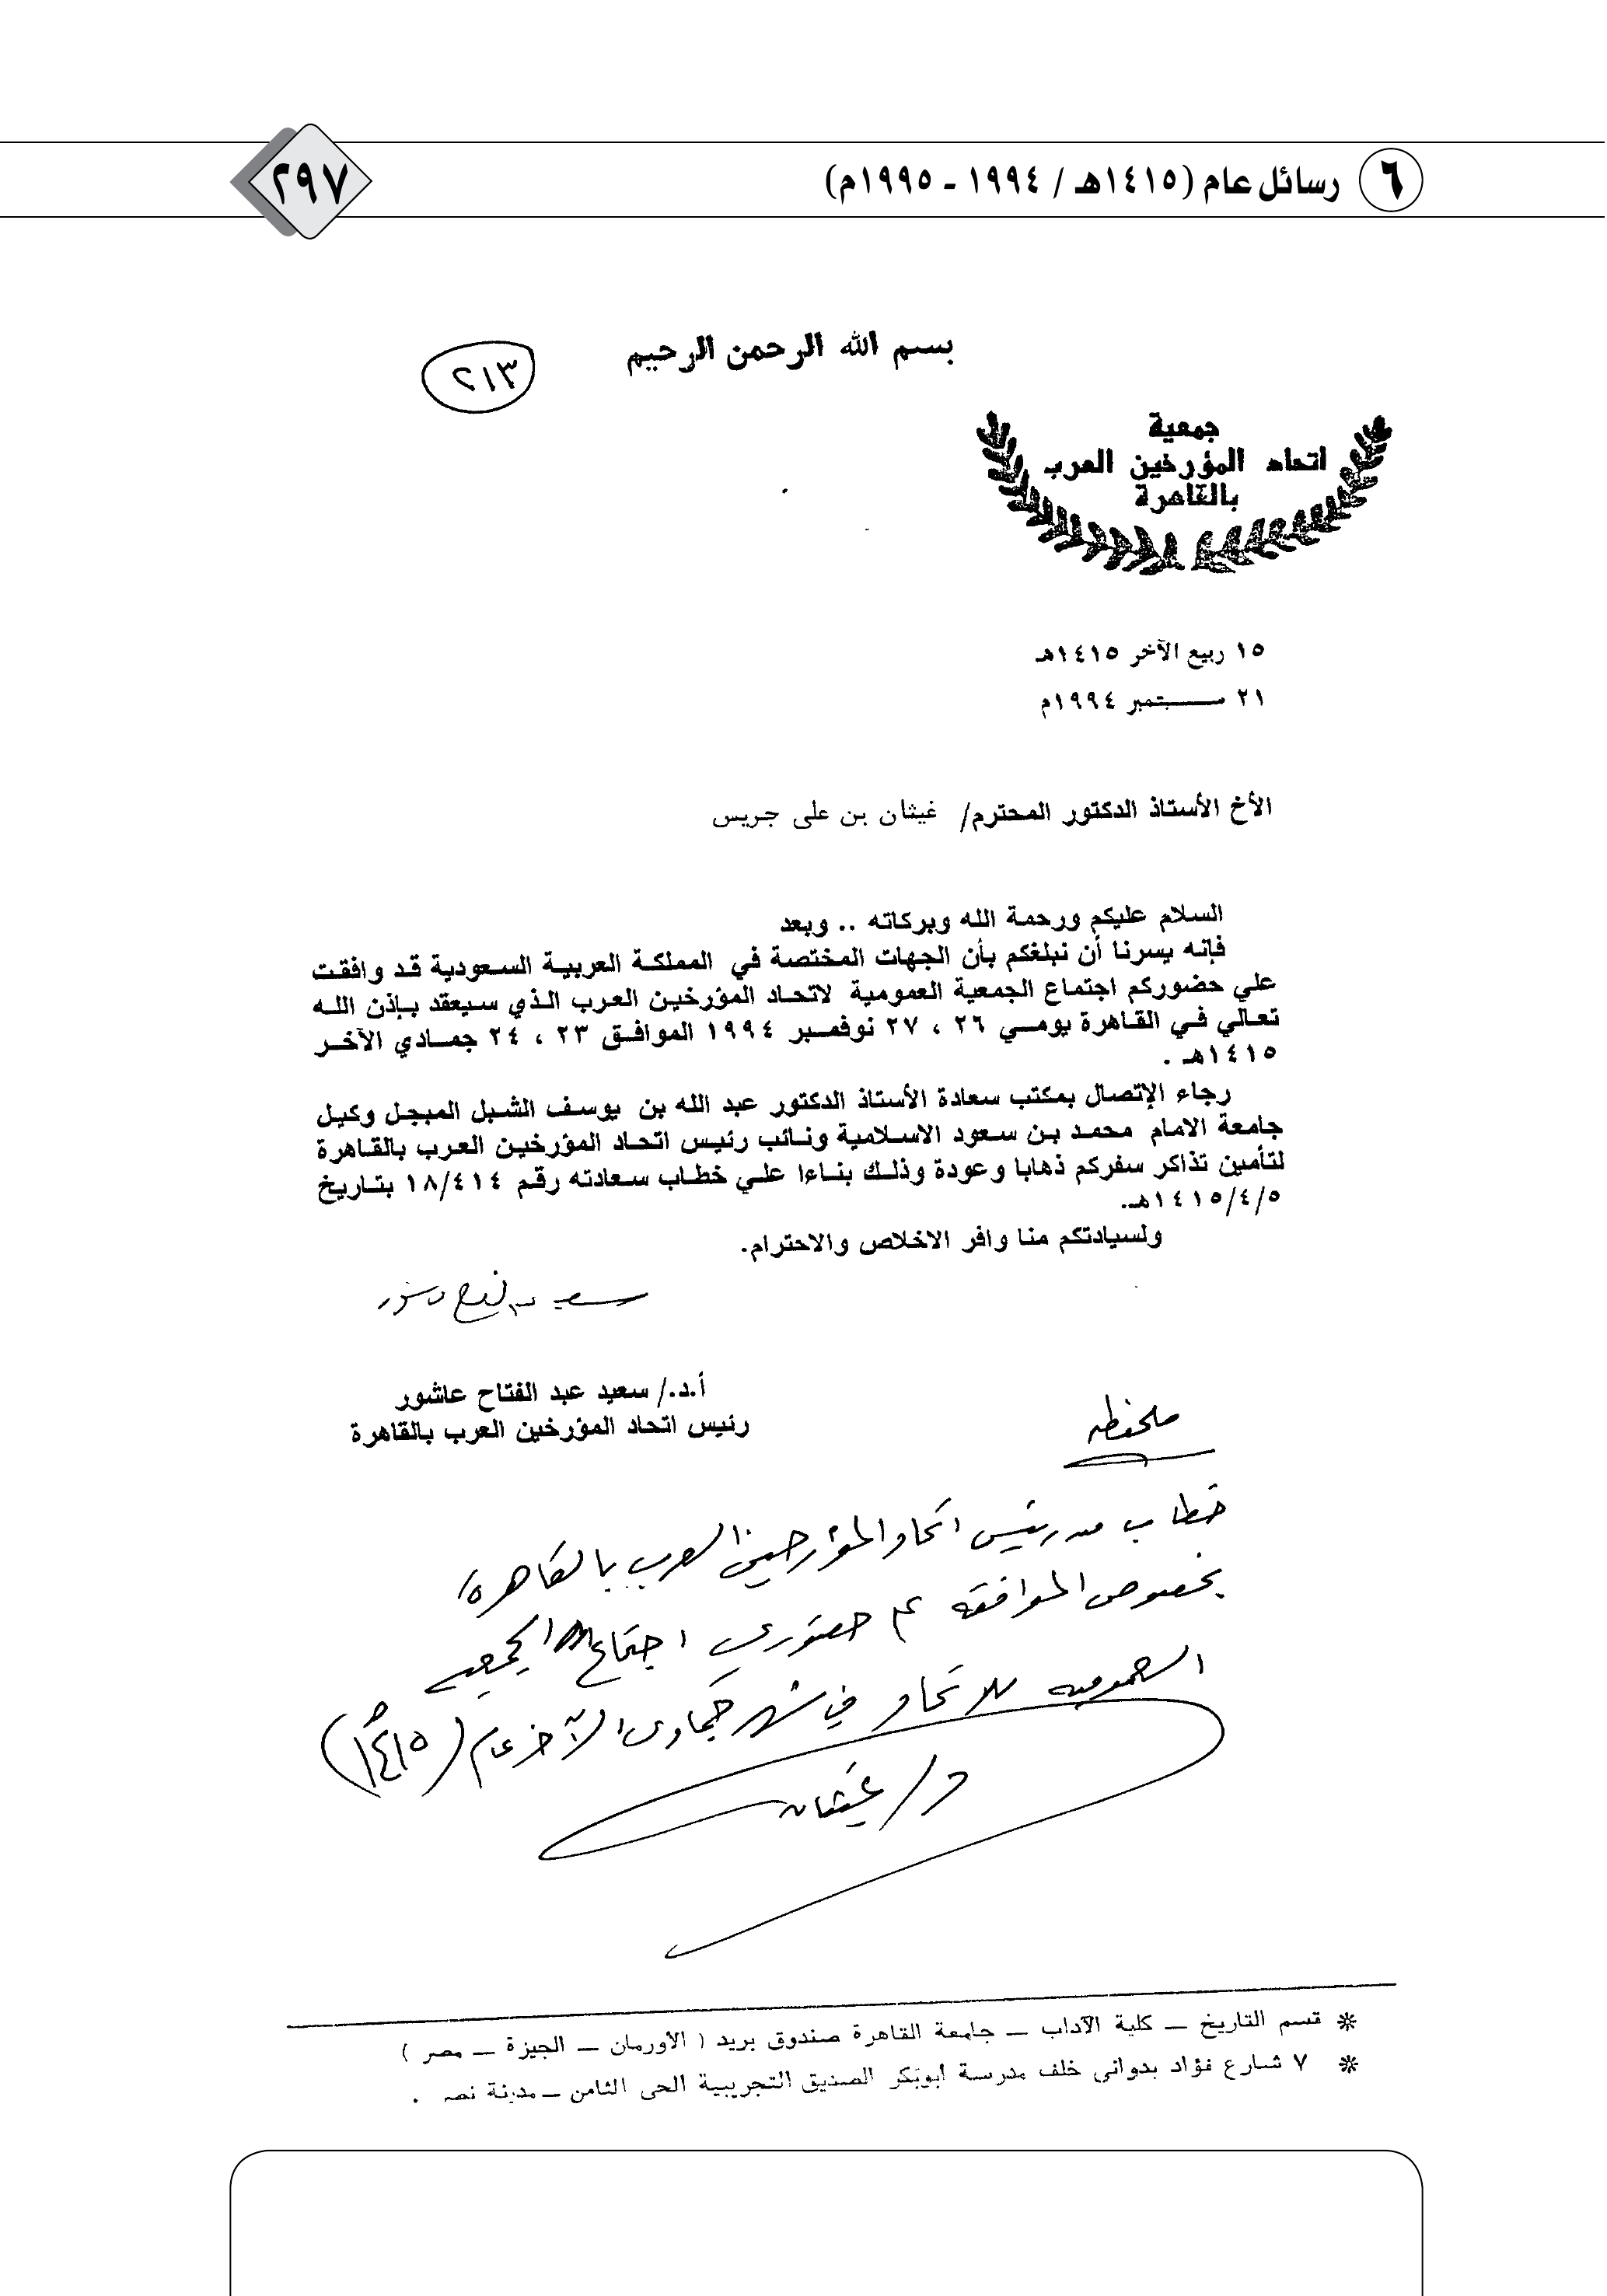 ٦ رسائل عام (١٤١٥هـ / ١٩٩٤ - ١٩٩٥م)
٢٩٧
بسم الله الرحمن الرحيم
٢١٣
جمعية
اتحاد المؤرخين العرب
بالقاهرة
١٥ ربيع الآخر ١٤١٥هـ
٢١ سبتمبر ١٩٩٤م
الأخ الأستاذ الدكتور المحترم/ غيثان بن على جريس
السلام عليكم ورحمة الله وبركاته .. وبعد
فإنه يسرنا أن نبلغكم بأن الجهات المختصة في المملكة العربية السعودية قد وافقت
علي حضوركم اجتماع الجمعية العمومية لاتحاد المؤرخين العرب الذي سيعقد بإذن الله
تعالي في القاهرة يومي ٢٦ ، ٢٧ نوفمبر ١٩٩٤ الموافق ٢٣ ، ٢٤ جمادي الآخر
١٤١٥هـ .
رجاء الإتصال بمكتب سعادة الأستاذ الدكتور عبد الله بن يوسف الشبل المبجل وكيل
جامعة الامام محمد بن سعود الاسلامية ونائب رئيس اتحاد المؤرخين العرب بالقاهرة
لتأمين تذاكر سفركم ذهابا وعودة وذلك بناءا علي خطاب سعادته رقم ١٨/٤١٤ بتاريخ
١٤١٥/٤/٥هـ.
ولسيادتكم منا وافر الاخلاص والاحترام.
سعيد عبد الفتاح عاشور
أ.د./ سعيد عبد الفتاح عاشور
رئيس اتحاد المؤرخين العرب بالقاهرة
ملحظه
خطاب من رئيس اتحاد المؤرخين العرب بالقاهرة
بخصوص الموافقه على حضوري اجتماع الجمعيه
العموميه للاتحاد في شهر جمادى الآخر عام (١٤١٥هـ)
د/ غيثان
* قسم التاريخ ــ كلية الآداب ــ جامعة القاهرة صندوق بريد ( الأورمان ــ الجيزة ــ مصر )
* ٧ شارع فؤاد بدوانى خلف مدرسة أبوبكر الصديق التجريبية الحى الثامن ــ مدينة نصـ .